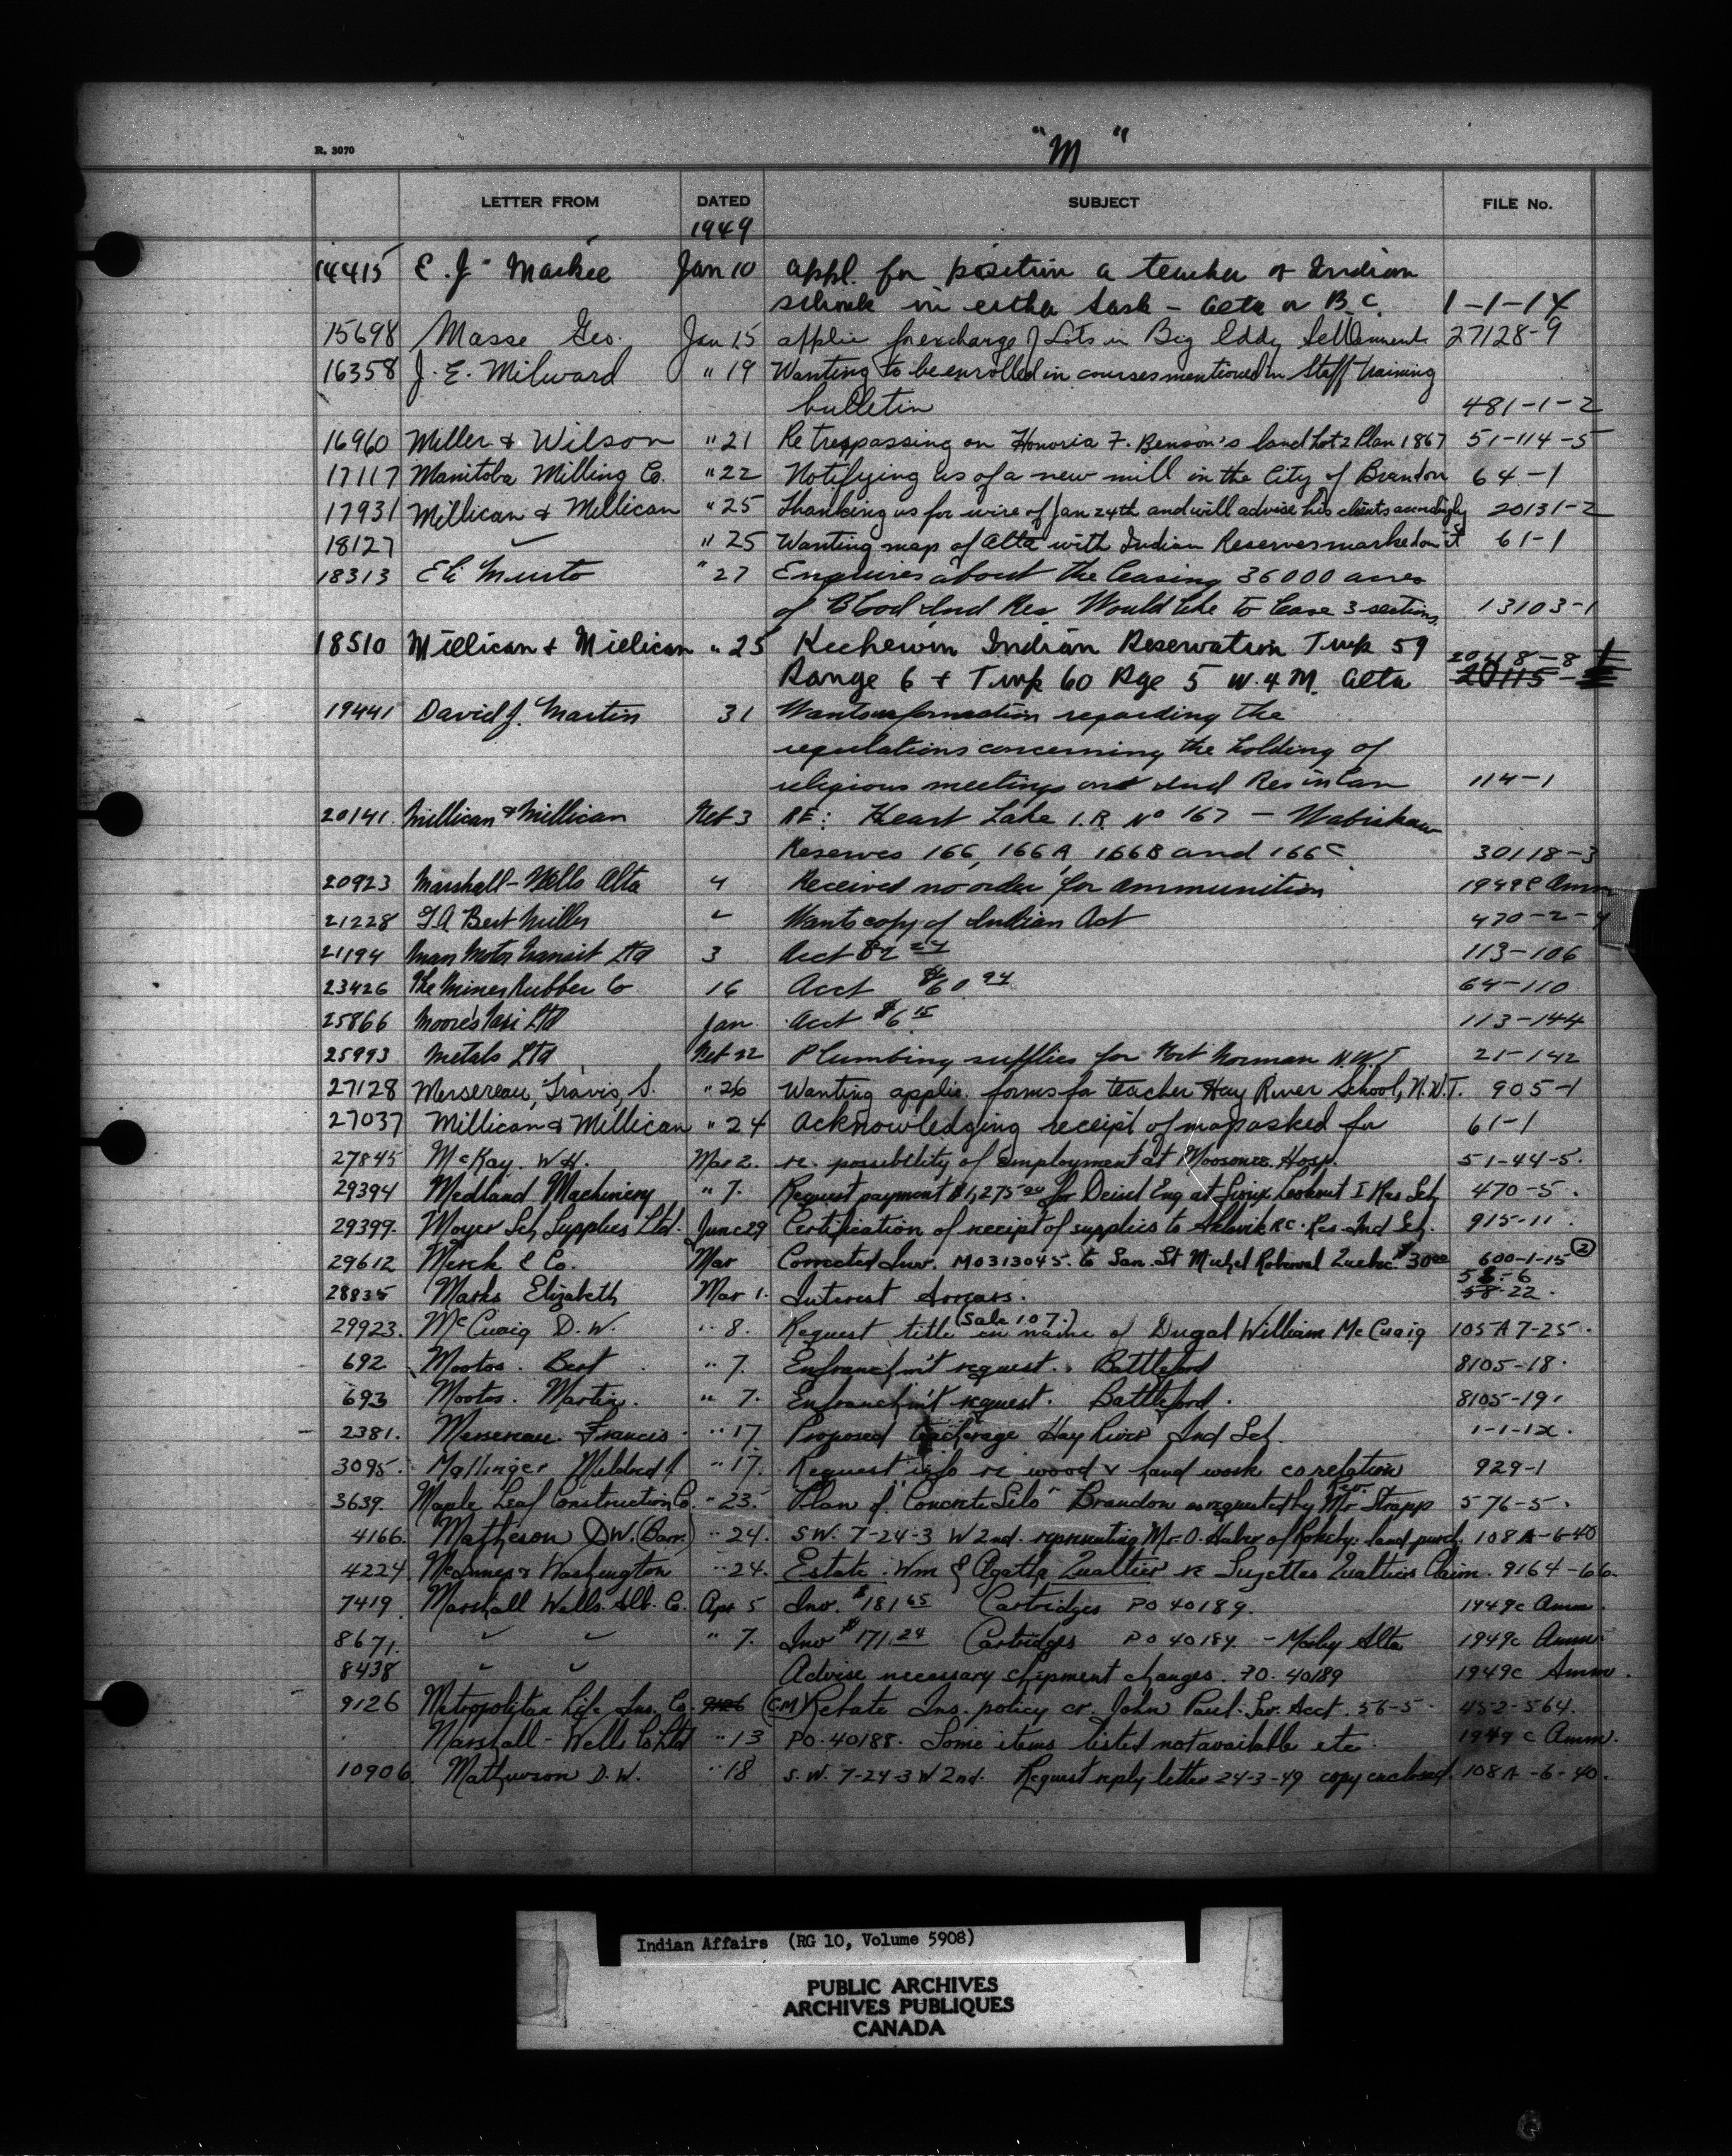 "M"
R. 3070
LETTER FROM DATED SUBJECT FILE No.
1949
14415 E. J. Mackie Jan 10 appl. for position a teacher of Indian
schools in either Sask - Alta or B.C. 1-1-14
15698 Masse Geo. Jan 15 applic for exchange of Lots in Big Eddy Settlement 27128-9
16358 J. E. Milward " 19 Wanting to be enrolled in courses mentioned in Staff training
bulletin 481-1-2
16960 Miller & Wilson " 21 Re trespassing on Honoria F. Benson's land Lot 2 Plan 1867 51-114-5
17117 Manitoba Milling Co. " 22 Notifying us of a new mill in the City of Brandon 64-1
17931 Millican & Millican " 25 Thanking us for wire of Jan 24th and will advise his clients accordingly 20131-2
18127 " 25 Wanting map of Alta with Indian Reserves marked on it 61-1
18313 " 27 Enquires about the leasing 36000 acres
of Blood Ind Res Would like to lease 3 sections. 13103-1
18510 Millican & Millican " 25 Kechewin Indian Reservation Twp 59
Range 6 & Twp 60 Rge 5 W. 4 M. Alta 20118-8 20115-
19441 David J. Martin 31 Wants information regarding the
regulations concerning the holding of
religious meetings on Ind Res in Can 114-1
20141 Millican & Millican Feb 3 RE: Heart Lake I.R. No 167 - Wabiskaw
Reserves 166, 166A, 166B and 166C 30118-3
20923 Marshall-Wells Alta 4 Received no order for ammunition 1949C Amm
21228 Bert Miller Wants copy of Indian Act 470-2-4
21194 Man Motor Transit Ltd 3 Acct 82 24 113-106
23426 The Miner Rubber Co 16 Acct $60 94 64-110
25866 Moore's Taxi Ltd Jan Acct $6 15 113-144
25993 Metals Ltd Feb 22 Plumbing supplies for Fort Norman N.W.T 21-142
27128 Mersereau, Travis, S. " 26 Wanting applic. forms for teacher Hay River School, N.W.T. 905-1
27037 Millican & Millican " 24 Acknowledging receipt of map asked for 61-1
27845 McKay. W.H. Mar 2. re. possibility of employment at Moosonee Hosp. 51-44-5.
29394 Medland Machinery " 7. Request payment $1,275.00 for Deisel Eng at Sioux Lookout I Res Sch 470-5.
29399. Moyer Sch Supplies Ltd. June 29 Certification of receipt of supplies to Aklavik RC. Res Ind Sch. 915-11.
29612 Merck & Co. Mar Corrected Inv. M0313045. to San. St Michel Roberval Quebec. $30 00 600-1-15 (2)
28835 Marks Elizabeth Mar 1. Interest Arrears. 58-6 58-22.
29923. McCuaig D.W. " 8. Request title (Sale 107.) in name of Dugal William McCuaig 105A7-25.
692 Mootos. Bert " 7. Enfranchm't request. Battleford 8105-18.
693 Mootos. Martin. " 7. Enfranchm't request. Battleford. 8105-19.
2381. Mersereau. Francis. " 17 Proposed Hay River Ind Sch. 1-1-12.
3095. Mallinger Mildred J. " 17. Request info re wood & hand work corelation 929-1
3639. Maple Leaf Construction Co. " 23. Plan of "Concrete Silo" Brandon as requested by Rev. Mr Strapp 576-5.
4166. Matheson D.W. (Barr.) " 24. S.W. 7-24-3 W 2nd. representing Mr. O. Huber of land purch. 108A-6-40
4224. McInnes & Washington " 24. Estate. Wm & Agatha Qualtier re Suzettes Qualtiers Claim. 9164-66.
7419 Marshall Wells. Alb. Co. Apr 5 Inv. $181 65 Cartridges PO 40189. 1949c Amm.
8671. " " " 7. Inv $171.24 Cartridges PO 40184. - Morley Alta 1949c Amm.
8438 " " Advise necessary shipment changes. PO. 40189 1949c Amm.
9126 Metropolitan Life Ins. Co. 9126 (CM) Rebate Ins. policy cr. John Paul. Sav. Acct. 56-5. 452-564.
Marshall-Wells Co Ltd " 13 PO. 40188. Some items listed not available etc. 1949 c Amm.
10906 Mathewson D.W. " 18 S.W. 7-24-3 W 2nd. Request reply letter 24-3-49 copy enclosed. 108A-6-40.
Indian Affairs (RG 10, Volume 5908)
PUBLIC ARCHIVES
ARCHIVES PUBLIQUES
CANADA